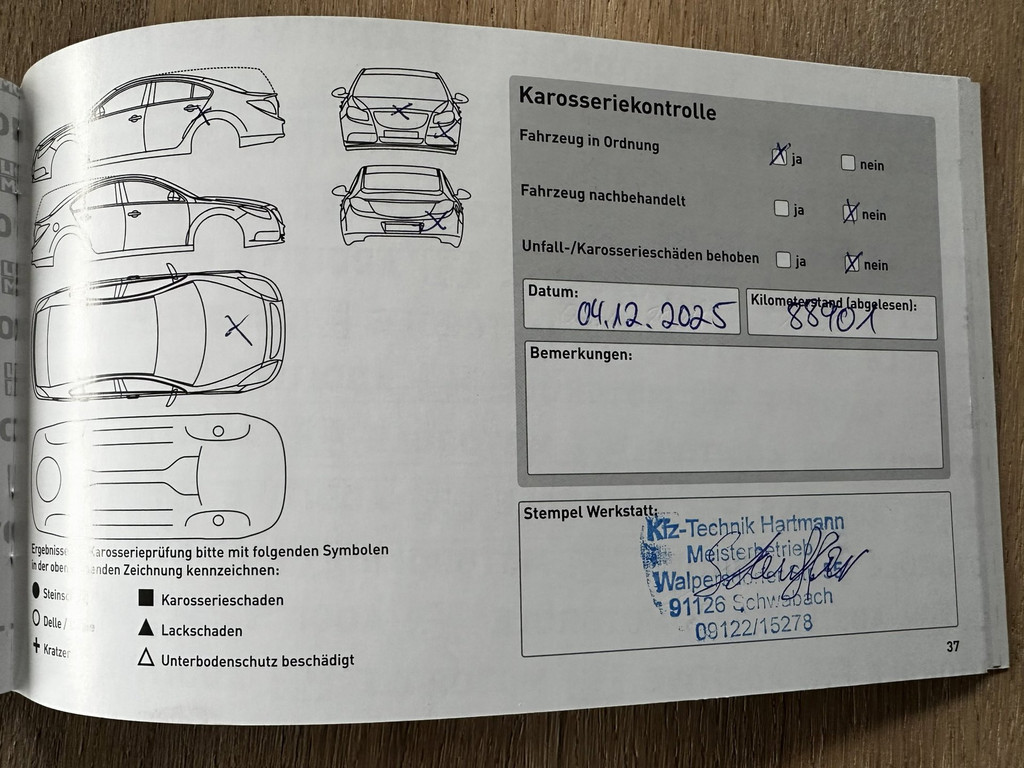 Karosseriekontrolle
Fahrzeug in Ordnung
ja
nein
Fahrzeug nachbehandelt
ja
nein
Unfall-/Karosserieschäden behoben
ja
nein
Datum:
04.12.2025
Kilometerstand (abgelesen):
88901
Bemerkungen:
Stempel Werkstatt:
Kfz-Technik Hartmann
Meisterbetrieb
91126 Schwabach
09122/15278
Karosserieprüfung bitte mit folgenden Symbolen
in der Zeichnung kennzeichnen:
Delle /
Kratzer
Karosserieschaden
Lackschaden
Unterbodenschutz beschädigt
37